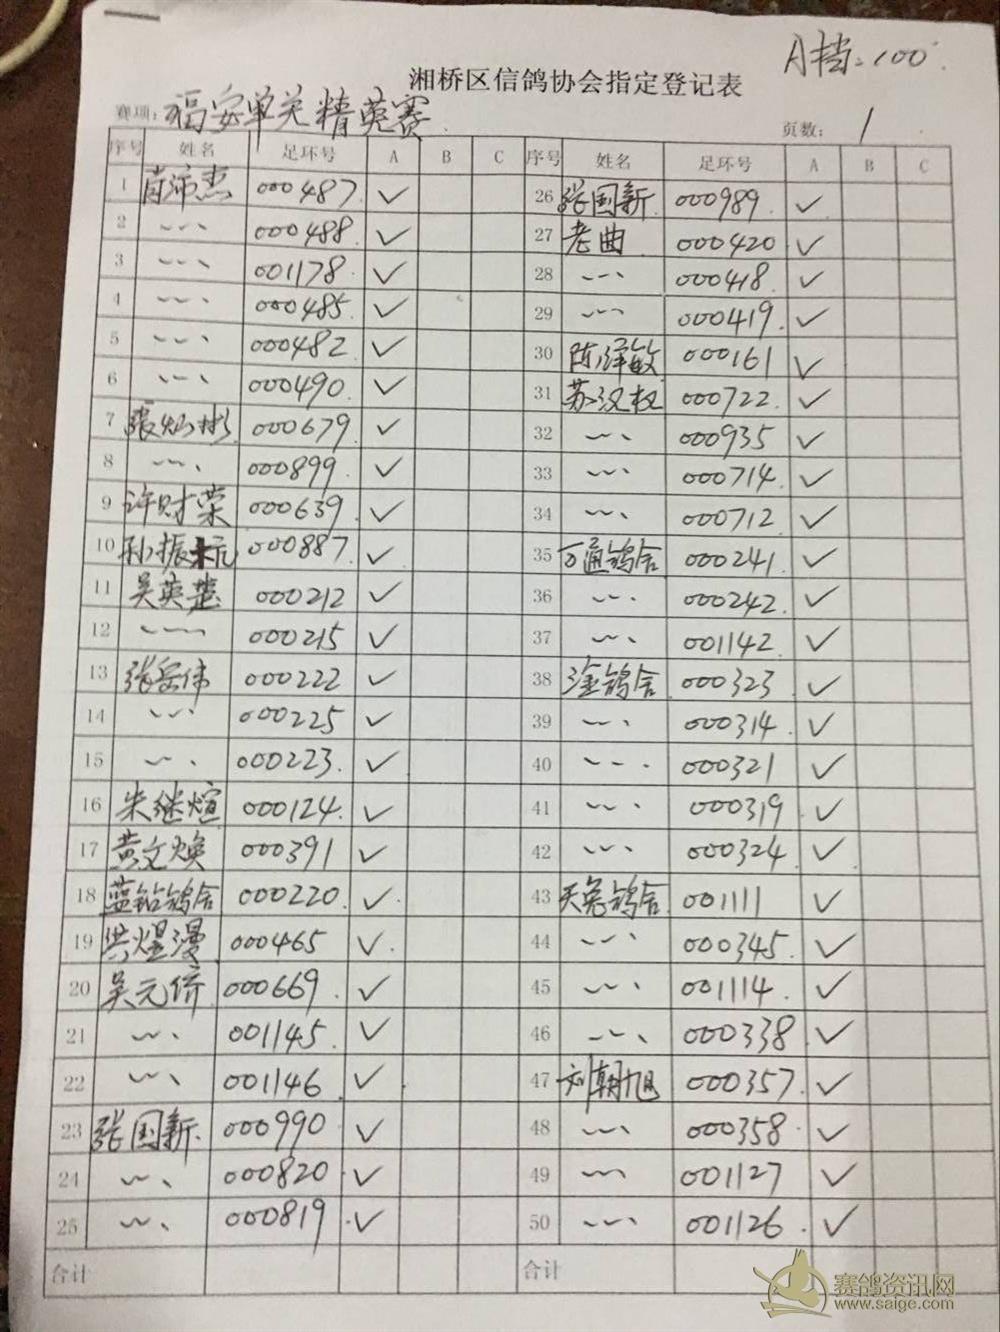 A档:100
湘桥区信鸽协会指定登记表
赛项:福安单关精英赛
页数: 1
序号 姓名 足环号 A B C 序号 姓名 足环号 A B C
1 肖沛杰 000487 ✓ 26 张国新 000989 ✓
2 000488 ✓ 27 老曲 000420 ✓
3 001178 ✓ 28 000418 ✓
4 000485 ✓ 29 000419 ✓
5 000482 ✓ 30 陈泽敏 000161 ✓
6 000490 ✓ 31 苏汉权 000722 ✓
7 張灿彬 000679 ✓ 32 000935 ✓
8 000899 ✓ 33 000714 ✓
9 许财荣 000639 ✓ 34 000712 ✓
10 孙振 000887 ✓ 35 万通鸽舍 000241 ✓
11 吴英楚 000212 ✓ 36 000242 ✓
12 000215 ✓ 37 001142 ✓
13 张岳伟 000222 ✓ 38 淦鸽舍 000323 ✓
14 000225 ✓ 39 000314 ✓
15 000223 ✓ 40 000321 ✓
16 朱继煊 000124 ✓ 41 000319 ✓
17 黄文焕 000391 ✓ 42 000324 ✓
18 蓝钻鸽舍 000220 ✓ 43 天兔鸽舍 001111 ✓
19 洪煜漫 000465 ✓ 44 000345 ✓
20 吴元侨 000669 ✓ 45 001114 ✓
21 001145 ✓ 46 000338 ✓
22 001146 ✓ 47 刘朝旭 000357 ✓
23 張国新 000990 ✓ 48 000358 ✓
24 000820 ✓ 49 001127 ✓
25 000819 ✓ 50 001126 ✓
合计 合计
赛鸽资讯网
www.saige.com